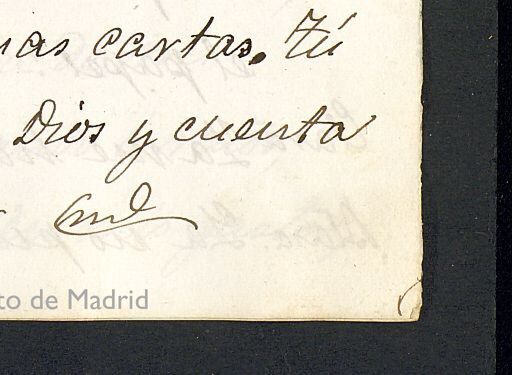 nas cartas. Tú
Dios y cuenta
to de Madrid